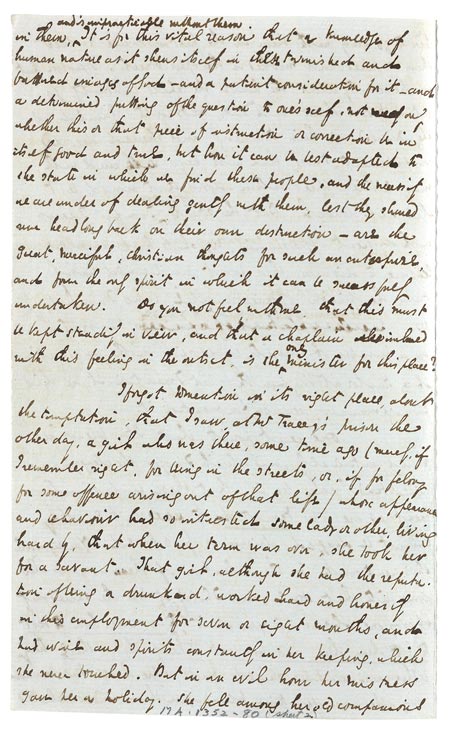 and is impracticable without them.
in them, It is for this vital reason that a knowledge of
human nature as it shews itself in these tarnished and
battered images of God – and a patient consideration for it – and
a determined putting of the question to one's self, not only
whether this or that piece of instruction or correction be in
itself good and true, but how it can be best adapted to
the state in which we find these people, and the necessity
we are under of dealing gently with them, lest they should
run headlong back on their own destruction – are the
great, merciful, Christian thoughts for such an enterprize,
and form the only spirit in which it can be successfully
undertaken. Do you not feel with me that this must
be kept steadily in view, and that a chaplain imbued
only
with this feeling in the outset, is the minister for this place?
I forgot to mention in its right place, about
the temptation, that I saw, at Mr Tracey's prison the
other day, a girl who was there, some time ago (merely, if
I remember right, for being in the streets, or, if for felony
for some offence arising out of that life) whose appearance
and behaviour had so interested some lady or other living
hard by, that when her term was over, she took her
for a servant. That girl, although she had the reputa-
tion of being a drunkard, worked hard and honestly
in this employment for seven or eight months, and
had wine and spirits constantly in her keeping, which
she never touched. But in an evil hour her mistress
gave her a holiday. She fell among her old companions
MA. 1352 - 80 (sheet 2)